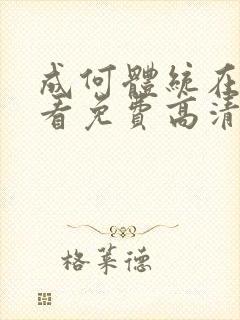 成何體統在
看免費高清
格莱德